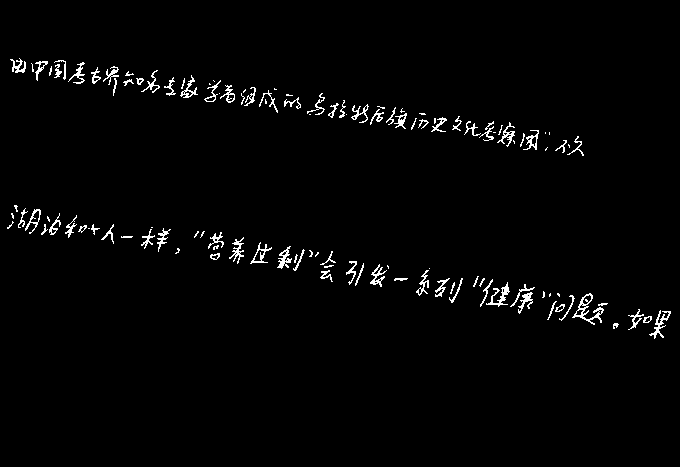 由中国考古界知名专家学者组成的乌拉特后旗历史文化考察团"，不久
湖泊和人一样，"营养过剩"会引发一系列"健康"问题。如果